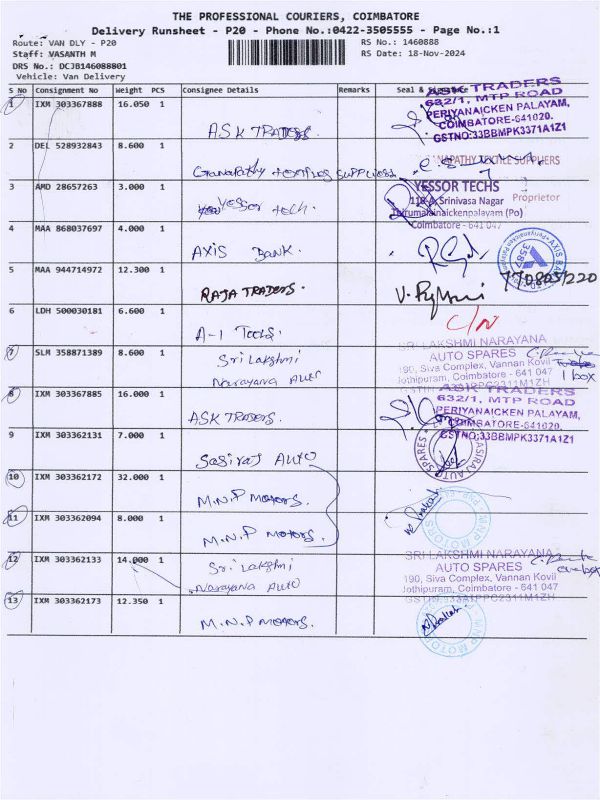 THE PROFESSIONAL COURIERS, COIMBATORE
Delivery Runsheet - P20 - Phone No.:0422-3505555 - Page No.:1
Route: VAN DLY - P20
RS No.: 1460888
Staff: VASANTH M
RS Date: 18-Nov-2024
DRS No.: DCJB146088801
Vehicle: Van Delivery
S No Consignment No Weight PCS Consignee Details Remarks Seal & Signature
1 IXM 303367888 16.050 1
ASK TRADERS.
ASK TRADERS
632/1, MTP ROAD
PERIYANAICKEN PALAYAM,
COIMBATORE-641020.
GSTNO:33BBMPK3371A1Z1
2 DEL 528932843 8.600 1
Ganapathy textiles suppliers.
GANAPATHY TEXTILE SUPPLIERS
3 AMD 28657263 3.000 1
Yessor tech.
YESSOR TECHS
Srinivasa Nagar
Proprietor
Thirumalainaickenpalayam (Po)
Coimbatore - 641
4 MAA 868037697 4.000 1
AXIS BANK.
AXIS BANK
5 MAA 944714972 12.300 1
RAJA TRADERS.
6 LDH 500030181 6.600 1
A-1 Tools.
C/N
7 SLM 358871389 8.600 1
Sri Lakshmi
Narayana Auto
SRI LAKSHMI NARAYANA
AUTO SPARES
190, Siva Complex, Vannan Kovil
Jothipuram, Coimbatore - 641 047
1 box
8 IXM 303367885 16.000 1
ASK TRADERS.
ASK TRADERS
632/1, MTP ROAD
PERIYANAICKEN PALAYAM,
COIMBATORE-641020.
GSTNO:33BBMPK3371A1Z1
9 IXM 303362131 7.000 1
Sasiraj Auto
SASIRAJ AUTO SPARES
10 IXM 303362172 32.000 1
M.N.P MOTORS.
11 IXM 303362094 8.000 1
M.N.P MOTORS.
MNP MOTORS
12 IXM 303362133 14.000 1
Sri Lakshmi
Narayana Auto
SRI LAKSHMI NARAYANA
AUTO SPARES
190, Siva Complex, Vannan Kovil
Jothipuram, Coimbatore - 641 047
13 IXM 303362173 12.350 1
M.N.P MOTORS.
MNP MOTORS